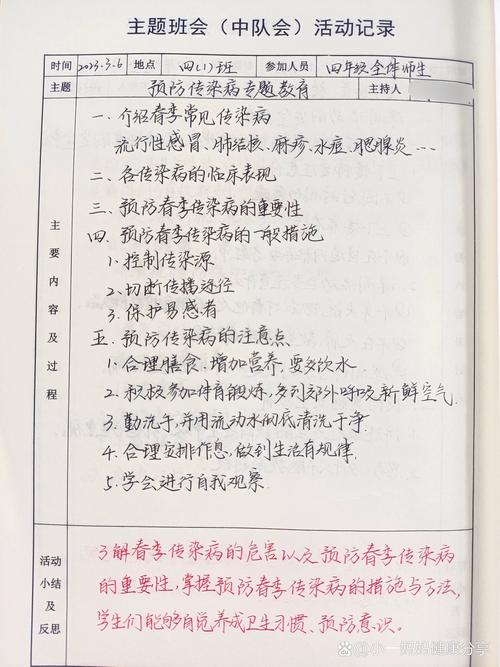 主题班会（中队会）活动记录
时间 2023.3.6 地点 四(1)班 参加人员 四年级全体师生
主题 预防传染病专题教育 主持人
一、介绍春季常见传染病
流行性感冒、肺结核、麻疹、水痘、腮腺炎…
二、各传染病的临床表现
三、预防春季传染病的重要性
四、预防春季传染病的一般措施
1.控制传染源
2.切断传播途径
3.保护易感者
五、预防传染病的注意点
1.合理膳食,增加营养,要多饮水
2.积极参加体育锻炼,多到郊外呼吸新鲜空气.
3.勤洗手,并用流动水彻底清洗干净
4.合理安排作息,做到生活有规律.
5.学会进行自我观察
主要内容及过程
了解春季传染病的危害以及预防春季传染病
的重要性,掌握预防春季传染病的措施与方法,
学生们能够自觉养成卫生习惯、预防意识。
活动
小结
及
反思
小一妈妈健康分享